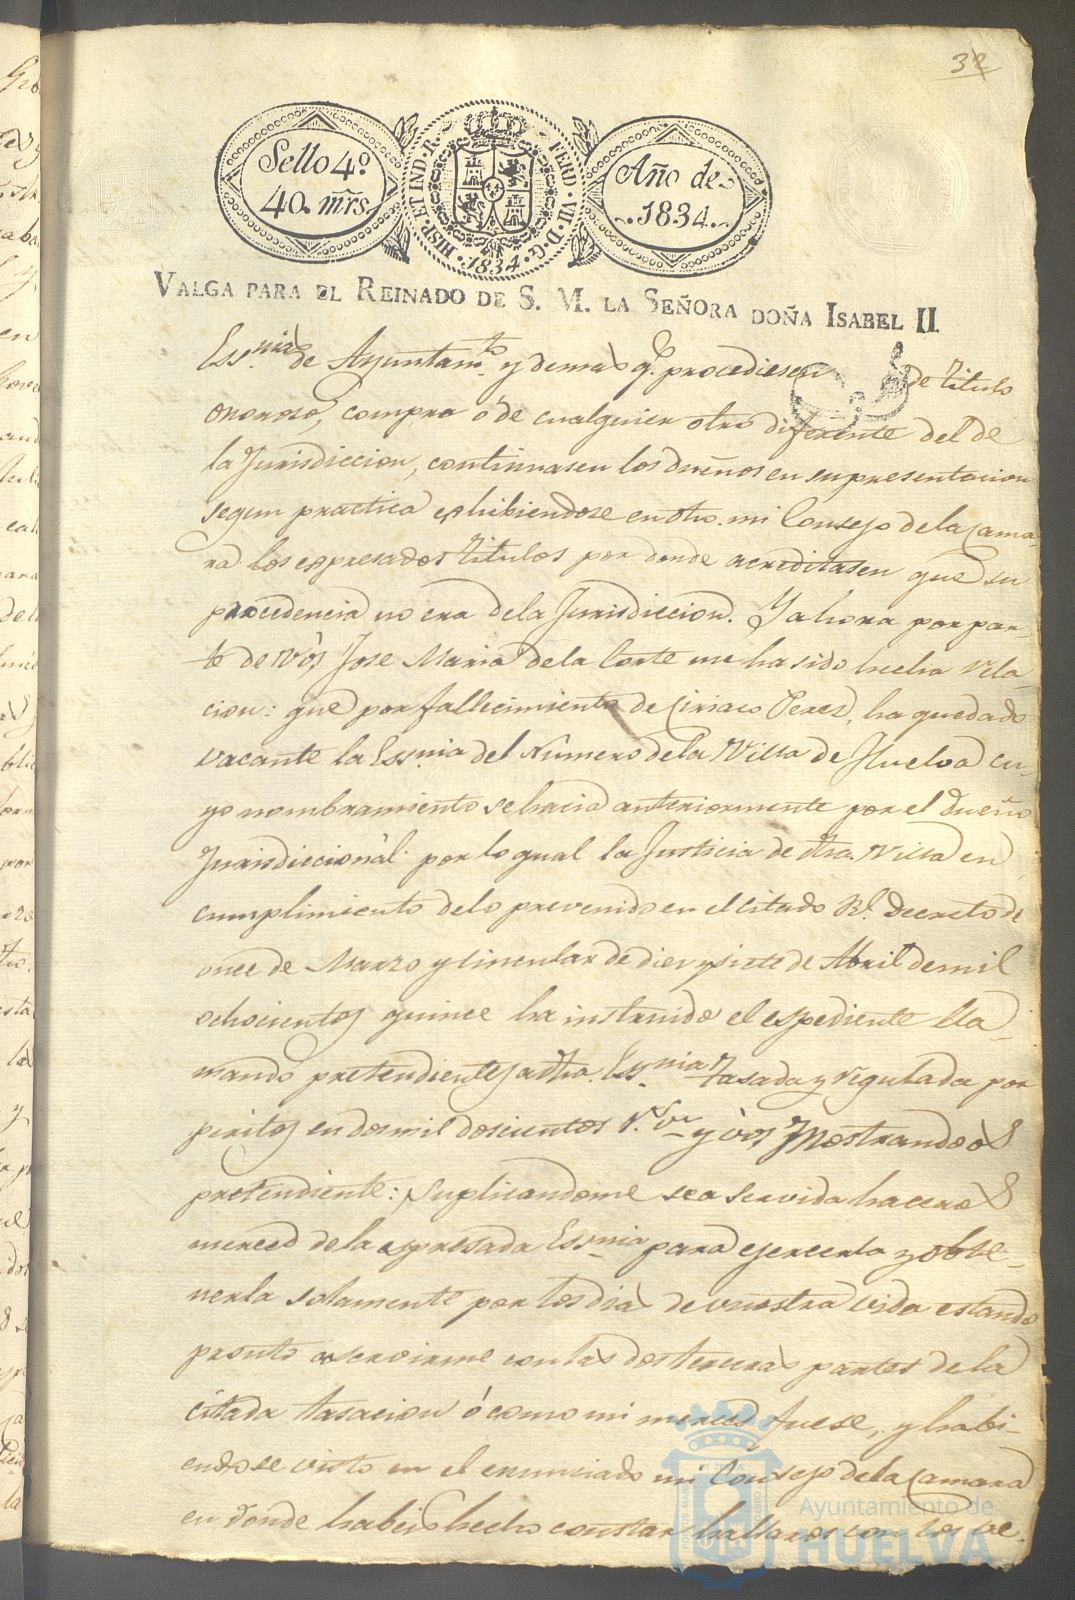 32
Sello 4º
40. mrs.
HISP. ET IND. R.
FERD. VII. D. G.
1834.
Año de
1834.
VALGA PARA EL REINADO DE S. M. LA SEÑORA DOÑA ISABEL II
Ess.nias de Ayuntam.to y demas q.e procediesen de titulo
oneroso, compra ó de cualquier otro diferente del de
la Jurisdiccion, continuasen los dueños en su presentacion
segun practica exhibiendose en dho. mi Consejo de la Cama-
ra los espresados titulos por donde acreditasen que su
procedencia no era de la Jurisdiccion. Y ahora por par-
te de vós Jose Maria de la Corte me ha sido hecha rela-
cion: que por fallecimiento de Ciriaco Perez, ha quedado
vacante la Ess.nia del Número de la Villa de Huelva cu-
yo nombramiento se hacia anteriormente por el dueño
Jurisdiccional: por lo qual la Justicia de dha. Villa en
cumplimiento de lo prevenido en el citado Rl. Decreto de
once de Marzo y circular de diez y siete de Abril de mil
ochocientos quince ha instruido el espediente lla-
mando pretendientes a dha. Ess.nia tasada y regulada por
peritos en dos mil doscientos r.s v.n y vós mostrandoos
pretendiente: suplicandome sea servida haceros
merced de la espresada Ess.nia para ejercerla y obte-
nerla solamente por los dias de vuestra vida estando
pronto a servirme con las dos terceras partes de la
citada tasacion ó como mi merced fuese; y habi-
endose visto en el enunciado mi Consejo de la Camara
en donde habeis hecho constar hallaros con los re-
Ayuntamiento de
HUELVA